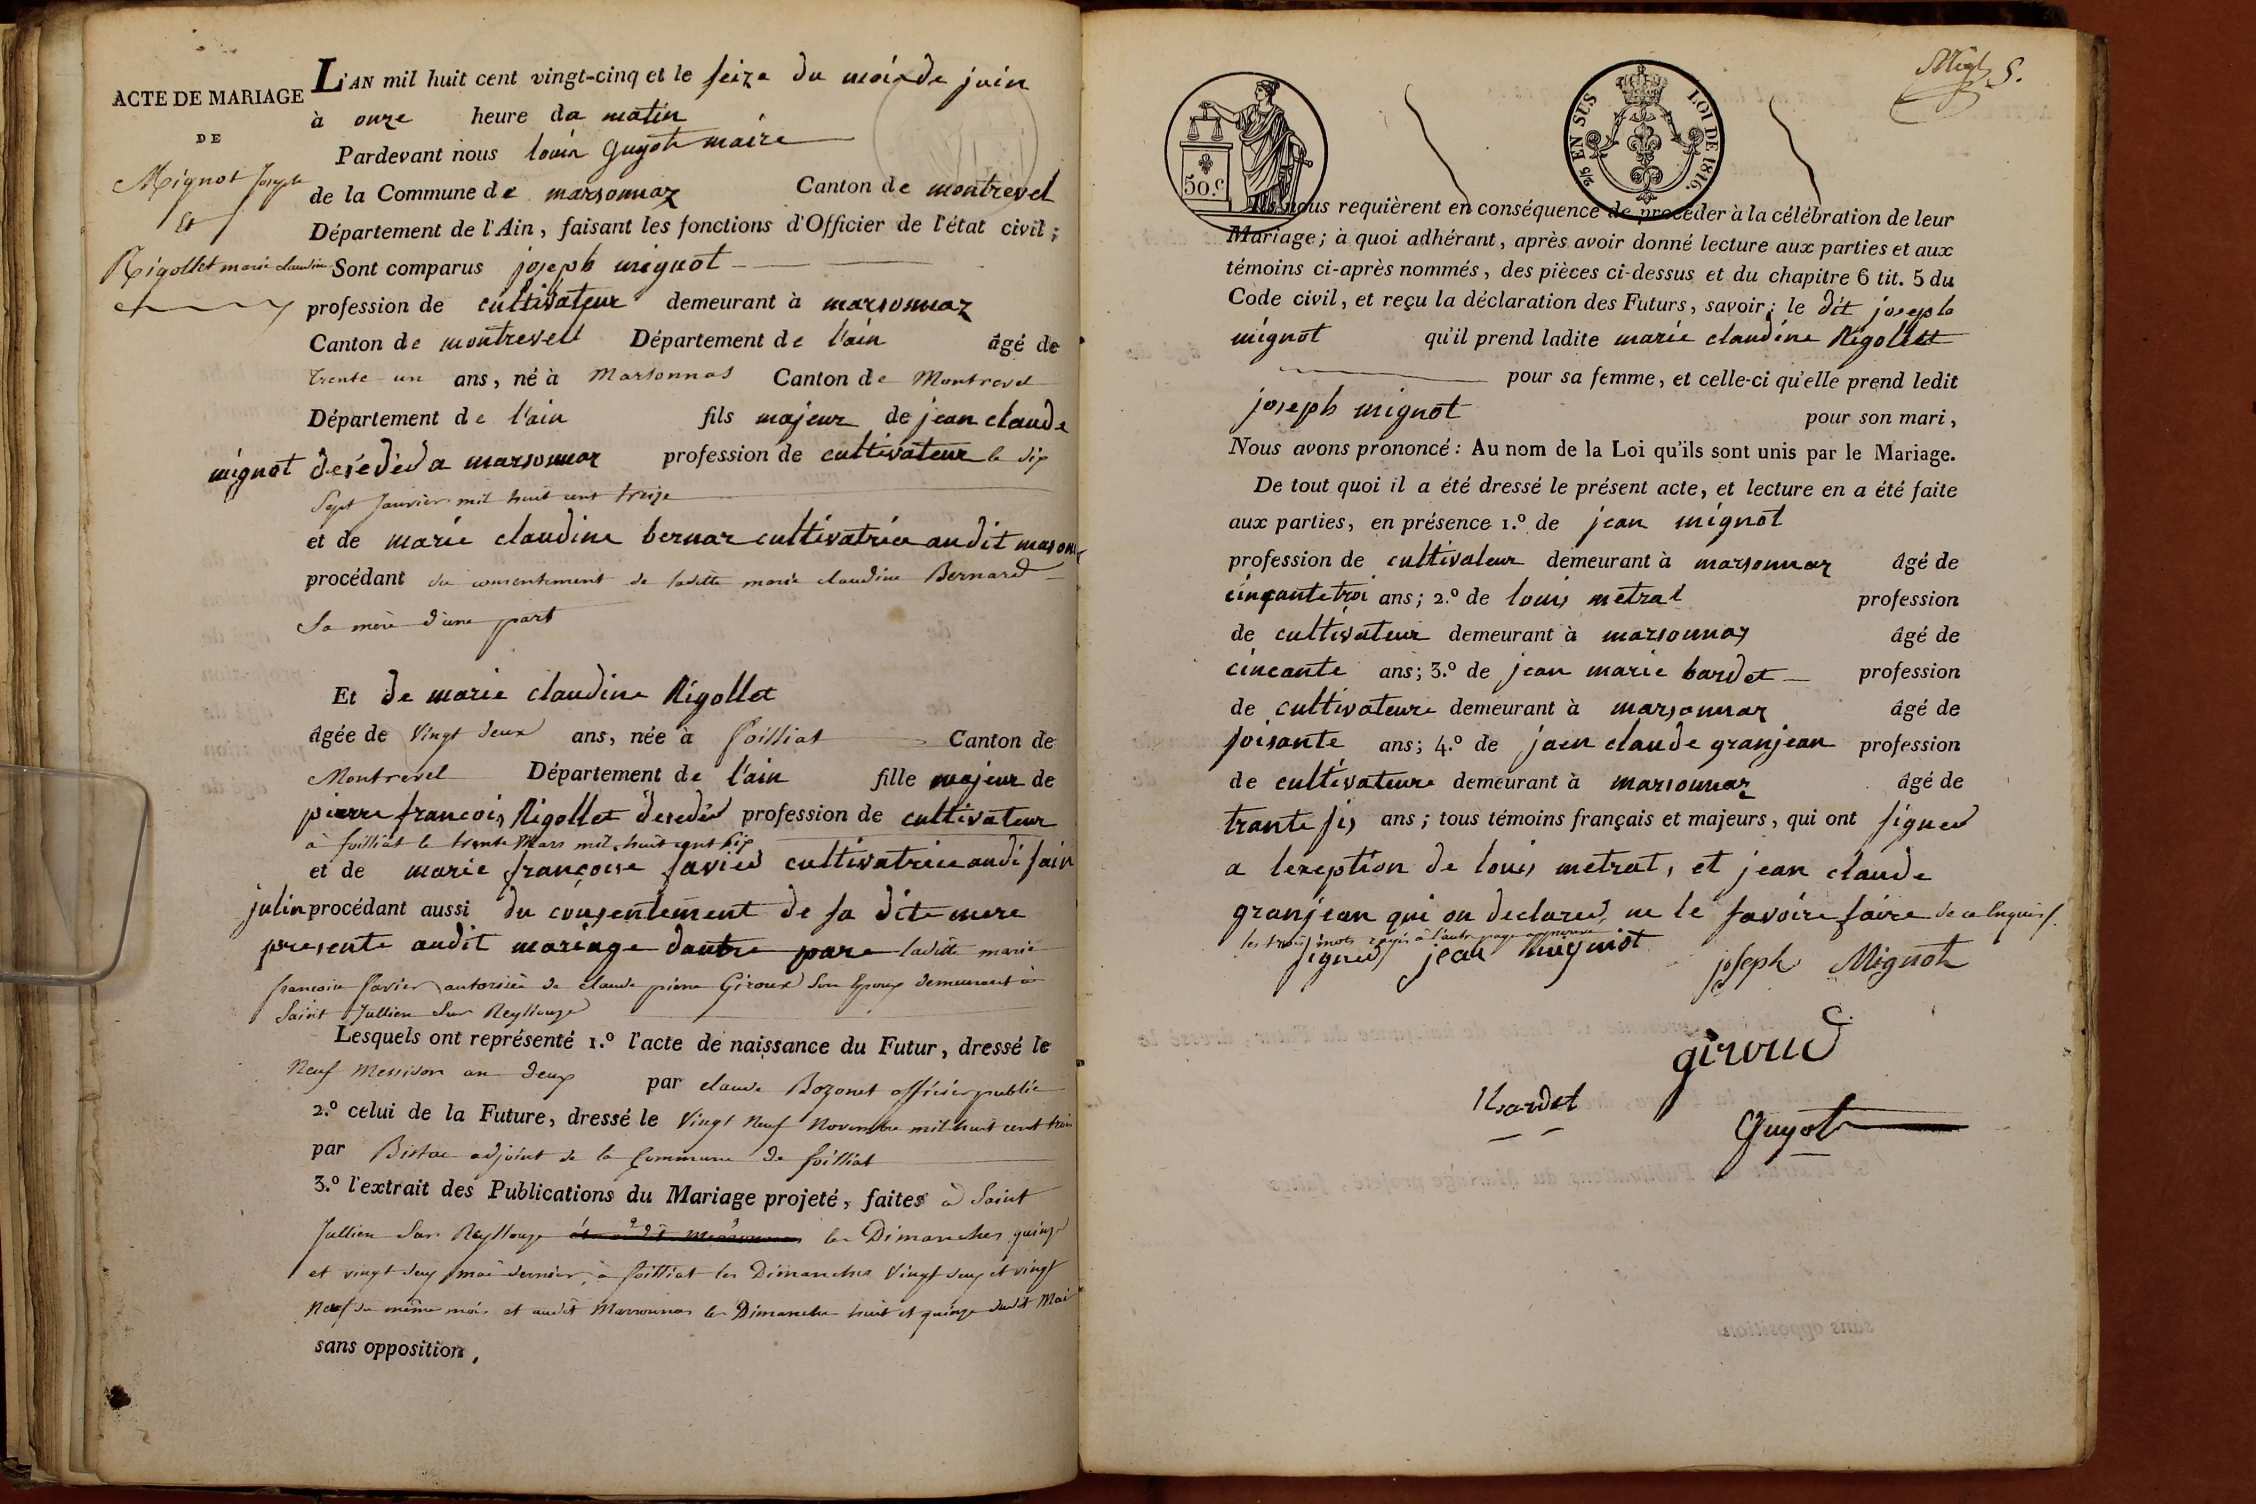 ACTE DE MARIAGE
DE
Mignot Joseph
Et
Rigollet marie claudine
L'AN mil huit cent vingt-cinq et le seize du mois de juin
à onze heure da matin
Pardevant nous louis Guyot maire
de la Commune de marsonnaz Canton de montrevel
Département de l'Ain, faisant les fonctions d'Officier de l'état civil ;
Sont comparus joseph mignot
profession de cultivateur demeurant à marsonnaz
Canton de montrevel Département de l'ain âgé de
trente un ans, né à Marsonnas Canton de Montrevel
Département de l'ain fils majeur de jean claude
mignot desédéd a marsonnaz profession de cultivateur le dix
Sept Janvier mil huit cent treize
et de marie claudine bernar cultivatrice audit marson
procédant du consentement de ladite marie claudine Bernard
Sa mère d'une part
Et de marie claudine Rigollet
âgée de vingt deux ans, née à foilliat Canton de
Montrevel Département de l'ain fille majeur de
pierre francois Rigollet desedéd profession de cultivateur
à foilliat le trente Mars mil huit cent dix
et de marie françoise savied cultivatrice audi sain
julin procédant aussi du consentement de sa dite mere
presente audit mariage dautre pare ladite marie
francoise Savier autorisée de claude pierre Giroud Son Epoux demeurant à
Saint Jullien Sur Reyssouze
Lesquels ont représenté 1.º l'acte de naissance du Futur, dressé le
Neuf Messidor an deux par claude Bozonet officier public
2.º celui de la Future, dressé le vingt Neuf Novembre mil huit cent trois
par adjoint de la Commune de foilliat
3.º l'extrait des Publications du Mariage projeté, faites à Saint
Jullien Sur Reyssouze les Dimanches quinze
et vingt deux mai dernier, à foilliat les Dimanches vingt deux et vingt
Neuf du même mois et audit Marsonnas les Dimanches huit et quinze dudit Mai
sans opposition,
50.c
2/5 EN SUS LOI DE 1816.
Ils nous requièrent en conséquence de procéder à la célébration de leur
Mariage ; à quoi adhérant, après avoir donné lecture aux parties et aux
témoins ci-après nommés, des pièces ci-dessus et du chapitre 6 tit. 5 du
Code civil, et reçu la déclaration des Futurs, savoir : le dit joseph
mignot qu'il prend ladite marie claudine Rigollet
pour sa femme, et celle-ci qu'elle prend ledit
joseph mignot pour son mari,
Nous avons prononcé : Au nom de la Loi qu'ils sont unis par le Mariage.
De tout quoi il a été dressé le présent acte, et lecture en a été faite
aux parties, en présence 1.º de jean mignot
profession de cultivateur demeurant à marsonnaz âgé de
cinquante troi ans ; 2.º de louis metral profession
de cultivateur demeurant à marsonnaz âgé de
cincante ans ; 3.º de jean marie bardet profession
de cultivateure demeurant à marsonnaz âgé de
soisante ans ; 4.º de jaen claude granjean profession
de cultivateure demeurant à marsonnaz âgé de
trante sis ans ; tous témoins français et majeurs, qui ont signed
a lexeption de louis metrat, et jean claude
granjean qui on declared ne le savoire faire de ce enquis
les trois mots rayés à l'autre page approuvé
signed jean mignot joseph Mignot
giroud
Bardet
Guyot